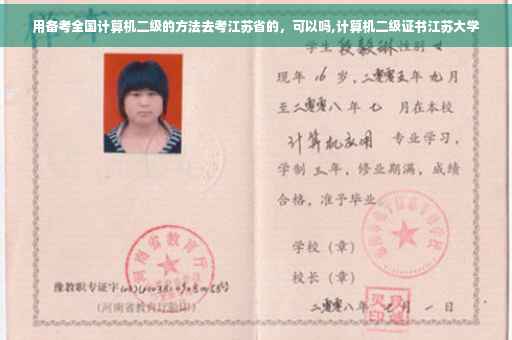 用备考全国计算机二级的方法去考江苏省的，可以吗,计算机二级证书江苏大学
学生 段毅琳 性别 女
现年 16 岁，二零零五年 九月
至二零零八年 七 月在本校
计算机应用 专业学习，
学制 三 年，修业期满，成绩
合格，准予毕业
学校（章）
校长（章）
二零零八年 七月 一 日
河南省教育厅
豫教职专证字
（河南省教育厅验印）